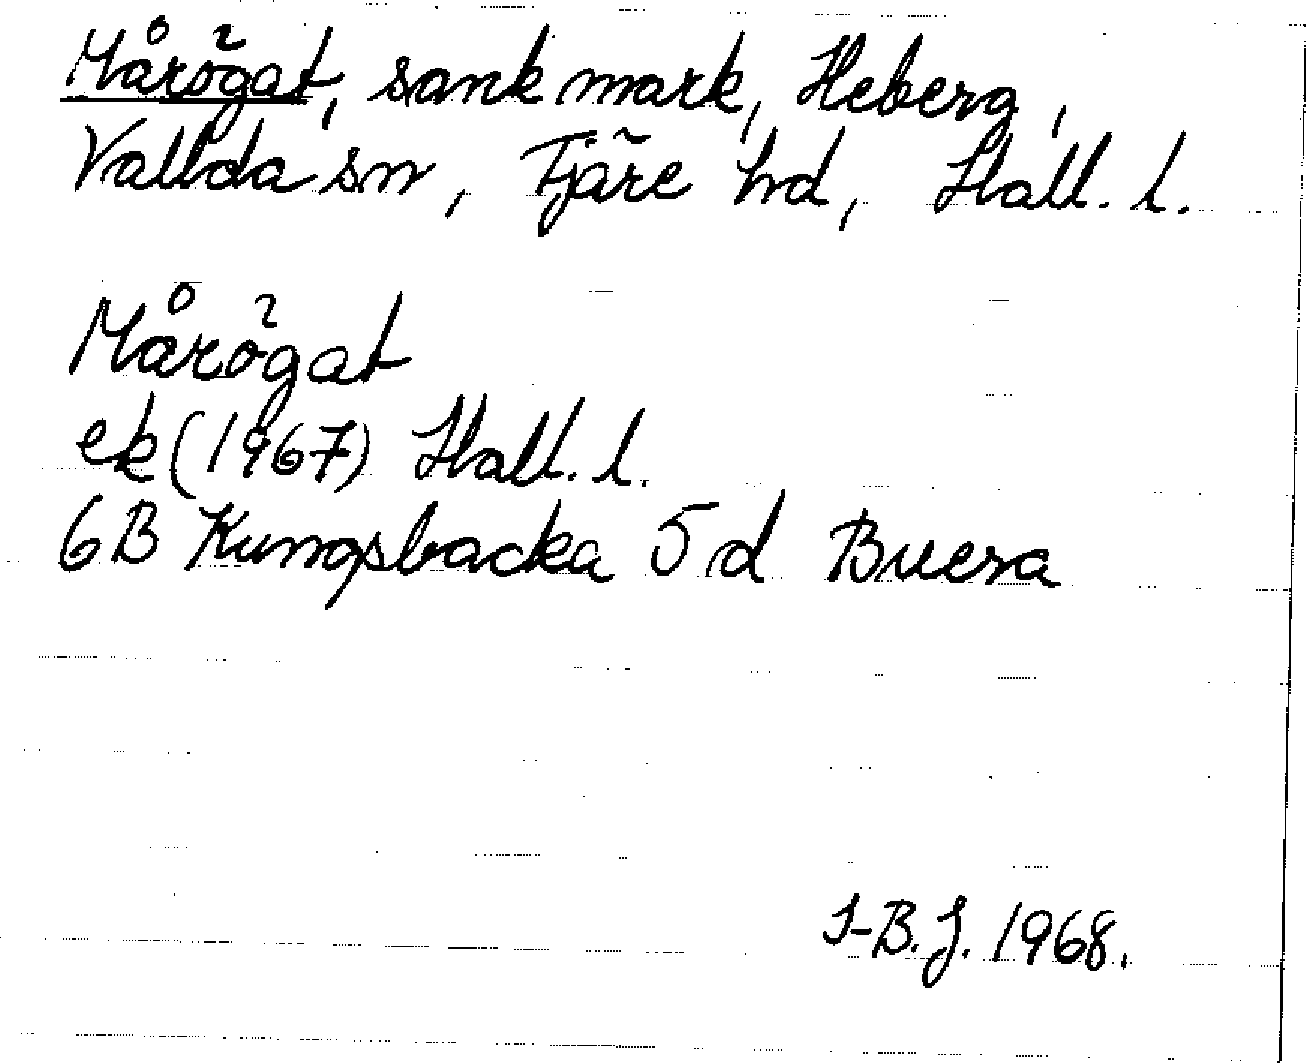 Mårögat, sank mark, Heberg,
Vallda sn, Fjäre hd, Hall. l.
Mårögat
ek (1967) Hall. l.
6B Kungsbacka 5d Buera
I-B.J. 1968.